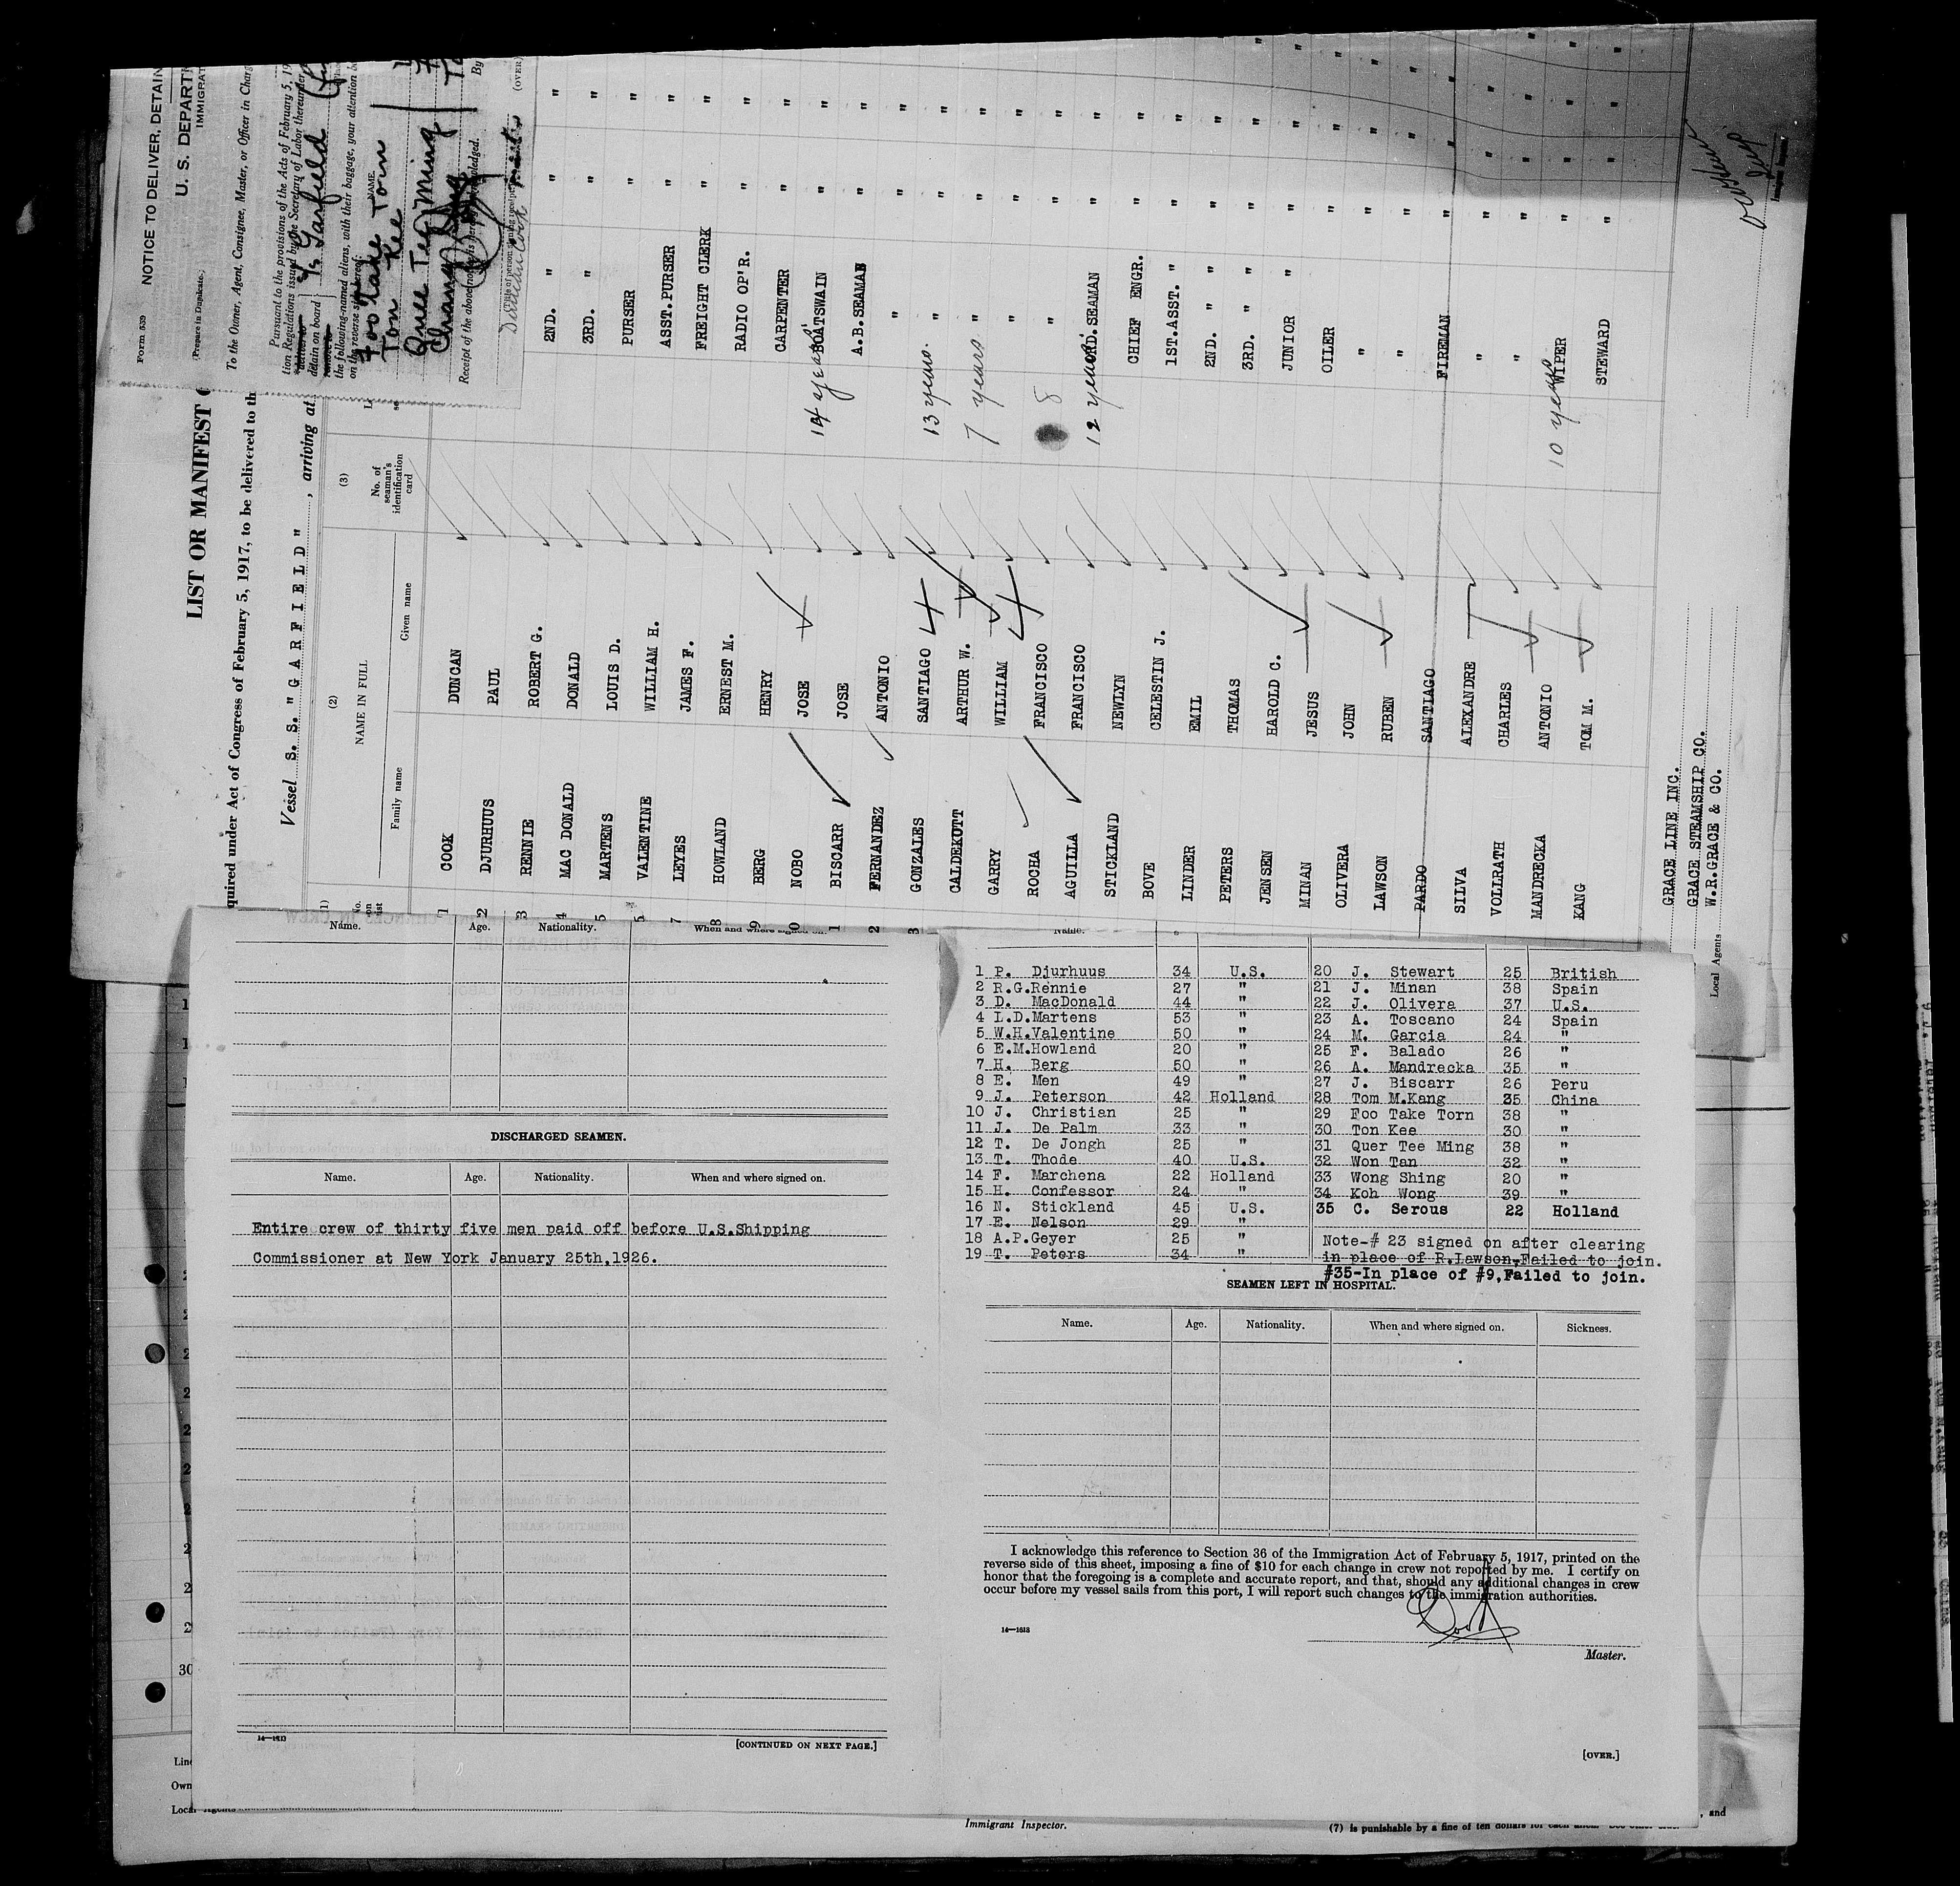 Form 539
(Prepare in Duplicate.)
NOTICE TO DELIVER, DETAIN
U. S. DEPARTM
IMMIGRAT
To the Owner, Agent, Consignee, Master, or Officer in Charg
Pursuant to the provisions of the Acts of February 5, 19
tion Regulations issued by the Secretary of Labor thereunder
detain on board
the following-named aliens, with their baggage, your attention b
on the reverse side hereof:
Garfield
NAME.
Foo Take Torn
Ton Kee
Quee Tee Ming
Receipt of the above notice is hereby acknowledged.
By
(OVER)
LIST OR MANIFEST O
quired under Act of Congress of February 5, 1917, to be delivered to th
Vessel S. S. "GARFIELD", arriving at
(1) (2) (3)
NAME IN FULL
No. of seaman's identification card
Family name Given name
1 COOK DUNCAN
2 DJURHUUS PAUL 2ND. "
3 RENNIE ROBERT G. 3RD. "
4 MAC DONALD DONALD PURSER
5 MARTENS LOUIS D. ASST.PURSER
VALENTINE WILLIAM H. FREIGHT CLERK
7 LEYES JAMES F. RADIO OP'R.
8 HOWLAND ERNEST M. CARPENTER
9 BERG HENRY 14 years BOATSWAIN
0 NOBO JOSE A.B.SEAMAN
1 BISCARR JOSE "
2 FERNANDEZ ANTONIO 13 years. "
3 GONZALES SANTIAGO 7 years "
CALDEKUTT ARTHUR W. "
GARRY WILLIAM 8 "
ROCHA FRANCISCO 12 years. ORD.SEAMAN
AGUILLA FRANCISCO
STICKLAND NEWLYN CHIEF ENGR.
BOVE CELESTIN J. 1ST.ASST. "
LINDER EMIL 2ND. " "
PETERS THOMAS 3RD. " "
JENSEN HAROLD C. JUNIOR "
MINAN JESUS OILER
OLIVERA JOHN "
LAWSON RUBEN "
PARDO SANTIAGO FIREMAN
SILVA ALEXANDRE "
VOLLRATH CHARLES "
MANDRECKA ANTONIO 10 years WIPER
KANG TOM M. STEWARD
GRACE LINE INC.
GRACE STEAMSHIP CO.
Local Agents W.R.GRACE & CO.
Name. Age. Nationality. When and where signed on.
DISCHARGED SEAMEN.
Name. Age. Nationality. When and where signed on.
Entire crew of thirty five men paid off before U.S.Shipping
Commissioner at New York January 25th,1926.
14—1613
[CONTINUED ON NEXT PAGE.]
Name.
1 P. Djurhuus 34 U.S.
2 R.G.Rennie 27 "
3 D. MacDonald 44 "
4 L.D.Martens 53 "
5 W.H.Valentine 50 "
6 E.M.Howland 20 "
7 H. Berg 50 "
8 E. Men 49 "
9 J. Peterson 42 Holland
10 J. Christian 25 "
11 J. De Palm 33 "
12 T. De Jongh 25 "
13 T. Thode 40 U.S.
14 F. Marchena 22 Holland
15 H. Confessor 24 "
16 N. Stickland 45 U.S.
17 E. Nelson 29 "
18 A.P.Geyer 25 "
19 T. Peters 34 "
20 J. Stewart 25 British
21 J. Minan 38 Spain
22 J. Olivera 37 U.S.
23 A. Toscano 24 Spain
24 M. Garcia 24 "
25 F. Balado 26 "
26 A. Mandrecka 35 "
27 J. Biscarr 26 Peru
28 Tom M.Kang 35 China
29 Foo Take Torn 38 "
30 Ton Kee 30 "
31 Quer Tee Ming 38 "
32 Won Tan 32 "
33 Wong Shing 20 "
34 Koh Wong 39 "
35 C. Serous 22 Holland
Note-# 23 signed on after clearing
in place of R.Lawson,Failed to join.
#35-In place of #9,Failed to join.
SEAMEN LEFT IN HOSPITAL.
Name. Age. Nationality. When and where signed on. Sickness.
I acknowledge this reference to Section 36 of the Immigration Act of February 5, 1917, printed on the
reverse side of this sheet, imposing a fine of $10 for each change in crew not reported by me. I certify on
honor that the foregoing is a complete and accurate report, and that, should any additional changes in crew
occur before my vessel sails from this port, I will report such changes to the immigration authorities.
14—1613
Master.
[OVER.]
30
Line
Own
Local Agents
Immigrant Inspector.
, and
(7) is punishable by a fine of ten dollars for each alien.